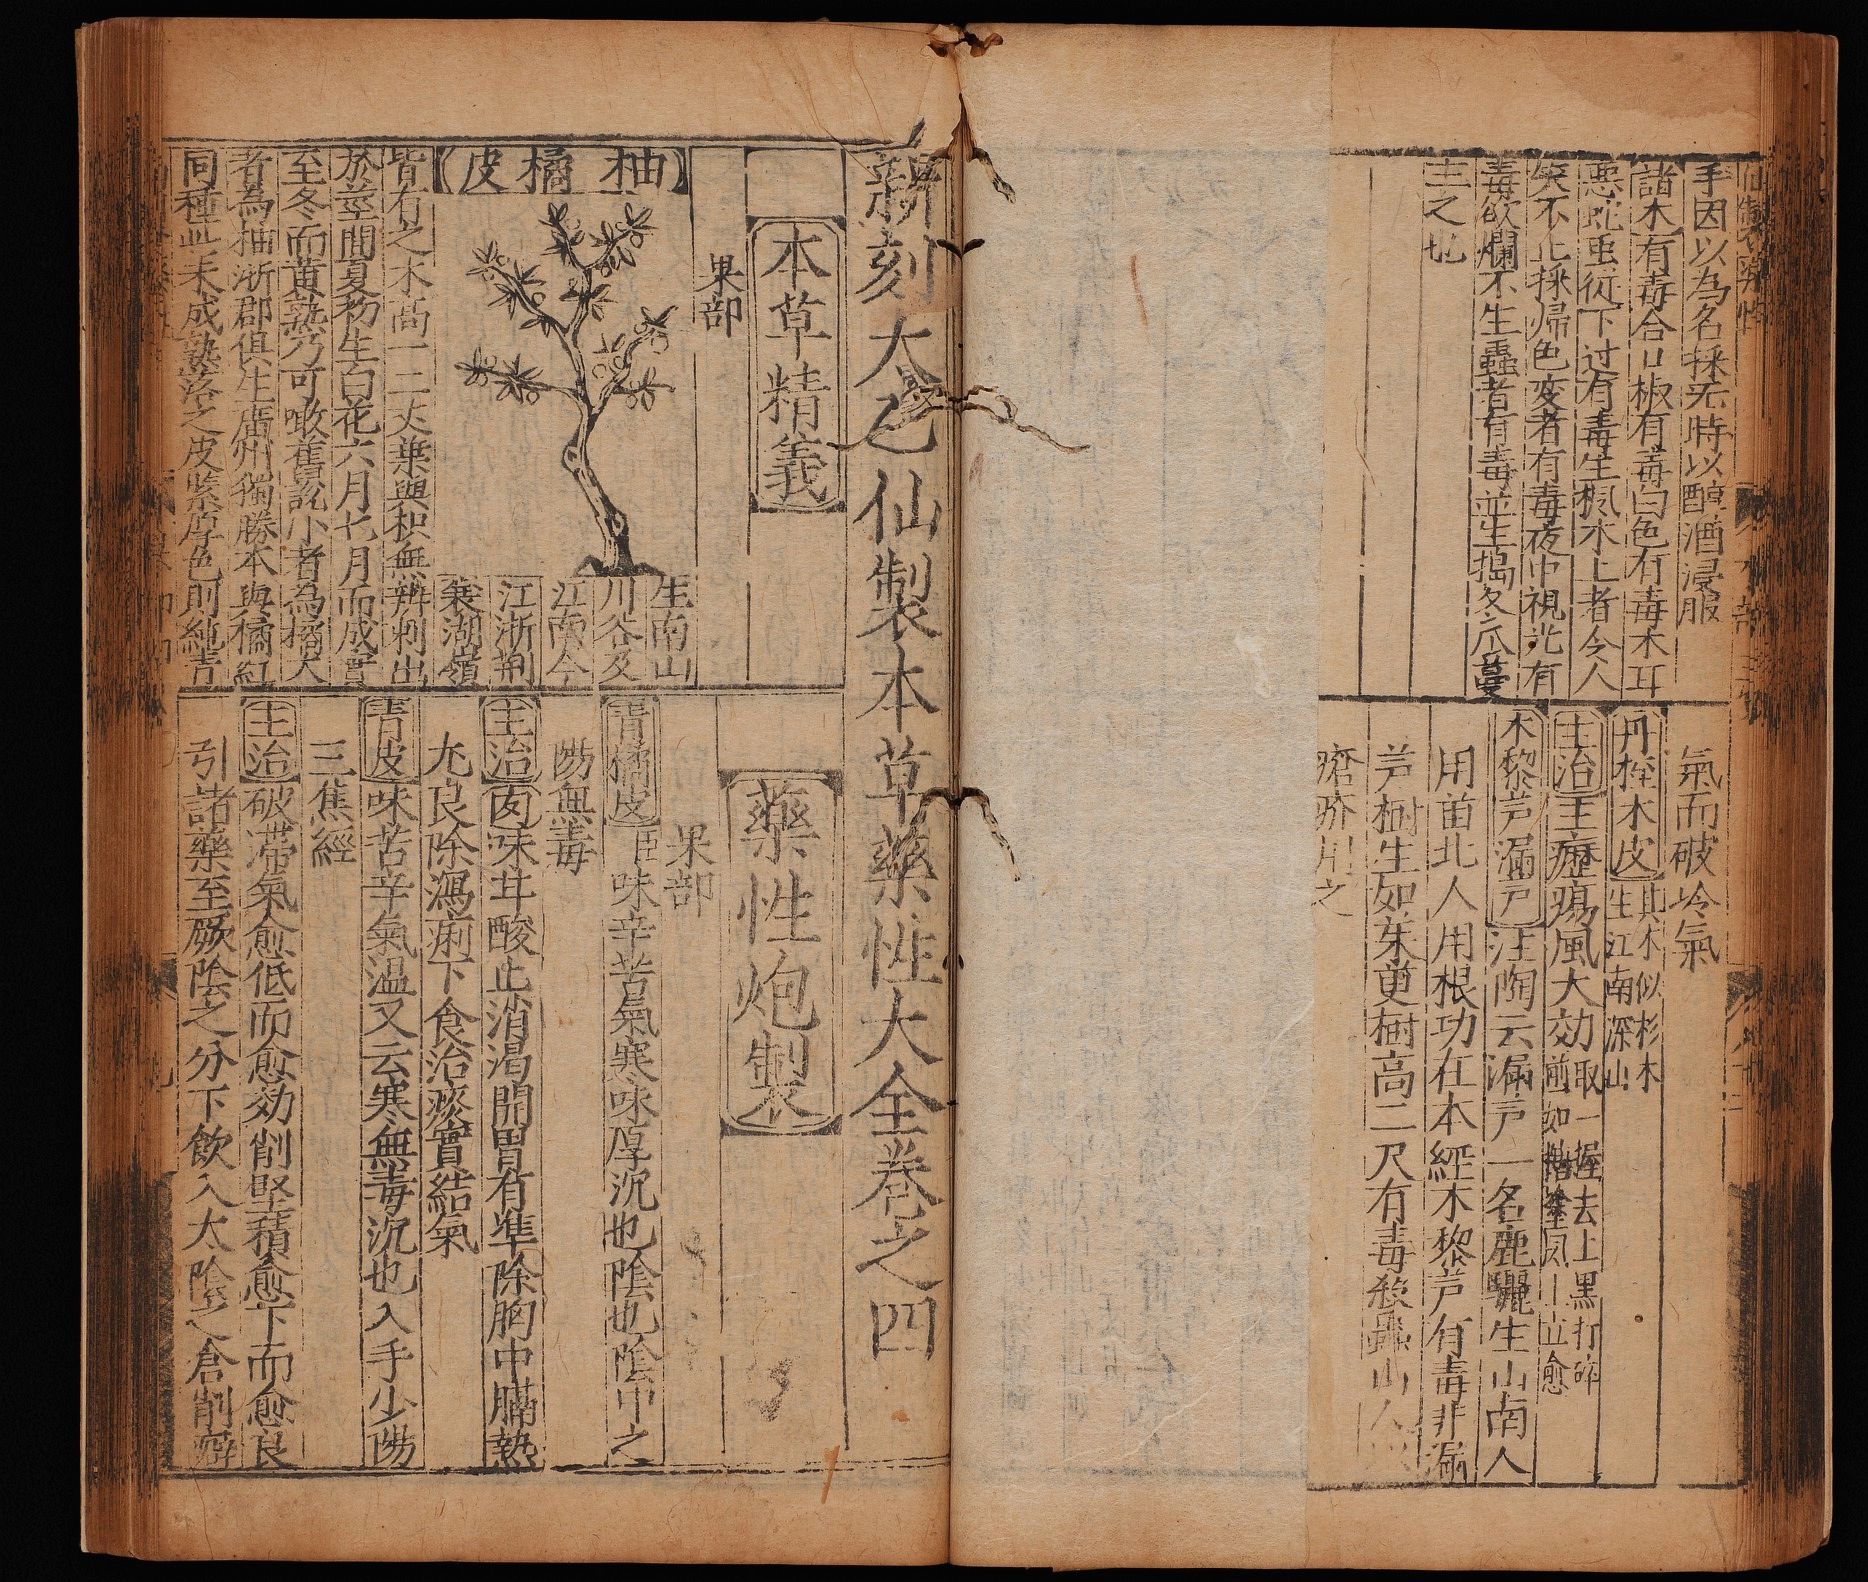 手因以為名採无時以醇酒浸服
諸木有毒合口椒有毒白色有毒木耳
悪蛇虫従下过有毒生楓木上者令人
笑不止採歸色変者有毒夜中視光有
毒欲爛不生蟲者有毒並生搗冬瓜蔓
主之也
氣而破冷氣
丹桎木皮其木似杉木
生江南深山
主治主癧瘍風大効取一握去上黒打碎
煎如糖塗風上立愈
木黎芦漏芦注陶云漏芦一名鹿驪生山南人
用苗北人用根功在本經木黎芦有毒非漏
芦樹生如茱萸樹高二尺有毒殺蟲山人
瘡疥用之
新刻太乙仙製本草藥性大全卷之四
本草精義
果部
柚橘皮
生南山
川谷及
江南今
江浙荆
襄湖嶺
皆有之木高一二丈葉與枳無辨刺出
於莖間夏初生白花六月七月而成實
至冬而黄熟乃可噉舊說小者為橘大
者為柚浙郡俱生廣州獨勝本與橘紅
同種此未成熟落之皮緊厚色則純青
藥性炮製
果部
青橘皮臣味辛苦氣寒味厚沉也陰也陰中之
陽無毒
主治肉味甘酸止消渴開胃有準除胸中膈熱
尤良除瀉痢下食治痰實結氣
青皮味苦辛氣温又云寒無毒沉也入手少陽
三焦經
主治破滞氣愈低而愈効削堅積愈下而愈良
引諸藥至厥陰之分下飲入太陰之倉削癖